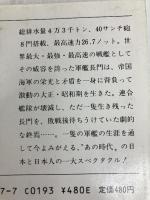 総排水量4万3千トン、40サンチ砲
8門搭載、最高速力26.7ノット。世
界最大・最強・最高速の戦艦として
その威容を誇った軍艦長門は、帝国
海軍の栄光と矛盾を一身に背負って
激動の大正・昭和期を生きた。連合
艦隊が壊滅し、ただ一隻生き残った
長門を、敗戦後待ちうけていた劇的
な終焉……。一隻の軍艦の生涯を通
して今よみがえる、"あの時代"の日
本と日本人の一大スペクタクル！
7-7 C0193 ¥480E 定価480円